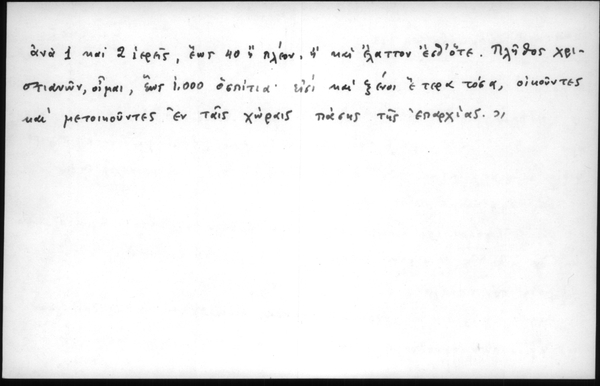 ἀνὰ 1 καὶ 2 ἱερεῖς, ἕως 40 ἢ πλέον, ἢ καὶ ἔλαττον ἐσθ' ὅτε. Πλῆθος χρι-
στιανῶν, οἶμαι, ἕως 1.000 ὁσπίτια· εἰσὶ καὶ ξένοι ἕτερα τόσα, οἰκοῦντες
καὶ μετοικοῦντες ἐν ταῖς χώραις πάσης τῆς ἐπαρχίας.»